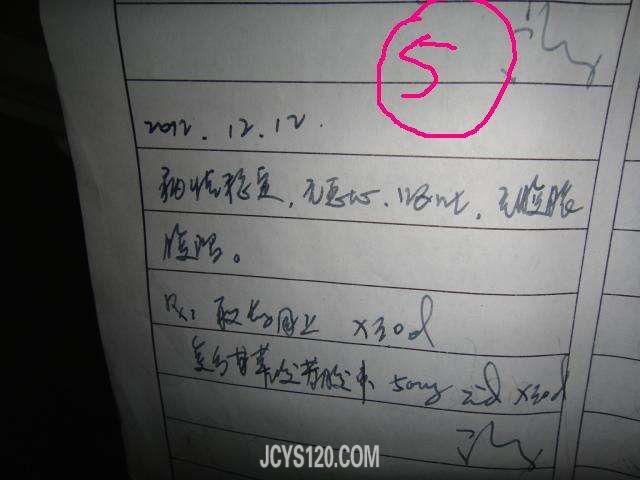 5
2012.12.12.
病情稳定,无恶心、呕吐,无腹胀
腹泻。
Rx: 同上 x30d
复方甘草酸苷胶囊 50mg tid x30d
JCYS120.COM